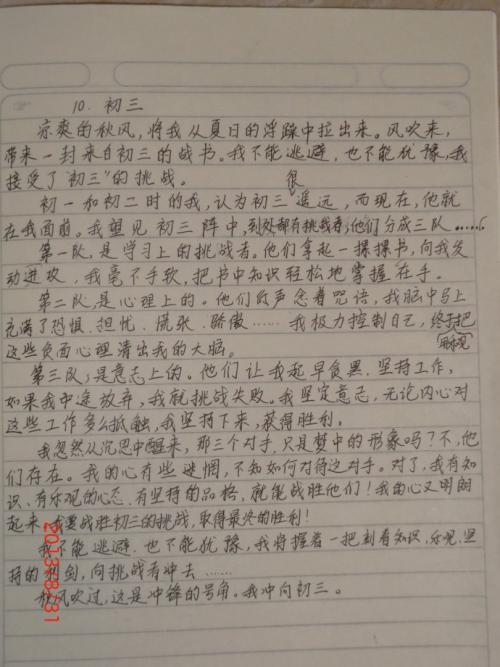 10. 初三
凉爽的秋风,将我从夏日的浮躁中拉出来。风吹来,
带来一封来自初三的战书。我不能逃避,也不能犹豫,我
接受了“初三”的挑战。
初一和初二时的我,认为初三很遥远,而现在,他就
在我面前。我望见初三阵中,到处都有挑战者,他们分成三队……
第一队,是学习上的挑战者。他们拿起一摞摞书,向我发
动进攻,我毫不手软,把书中知识轻松地掌握在手。
第二队,是心理上的。他们众声念着咒语,我脑中马上
充满了恐惧、担忧、慌张、骄傲……我极力控制自己,终于把
这些负面心理清出我的大脑。
第三队,是意志上的。他们让我起早贪黑,坚持工作,
如果我中途放弃,我就挑战失败。我坚定意志,无论内心对
这些工作多么抵触,我坚持下来,获得胜利。
我忽然从沉思中醒来,那三个对手,只是梦中的形象吗?不,他
们存在。我的心有些迷惘,不知如何对待这对手。对了,我有知
识、有乐观的心态、有坚持的品格,就能战胜他们!我的心又明朗
起来,我要战胜初三的挑战,取得最终的胜利!
我不能逃避,也不能犹豫,我将握着一把刻有知识、乐观、坚
持的利剑,向挑战者冲去……
秋风吹过,这是冲锋的号角。我冲向初三。
2013/8/31